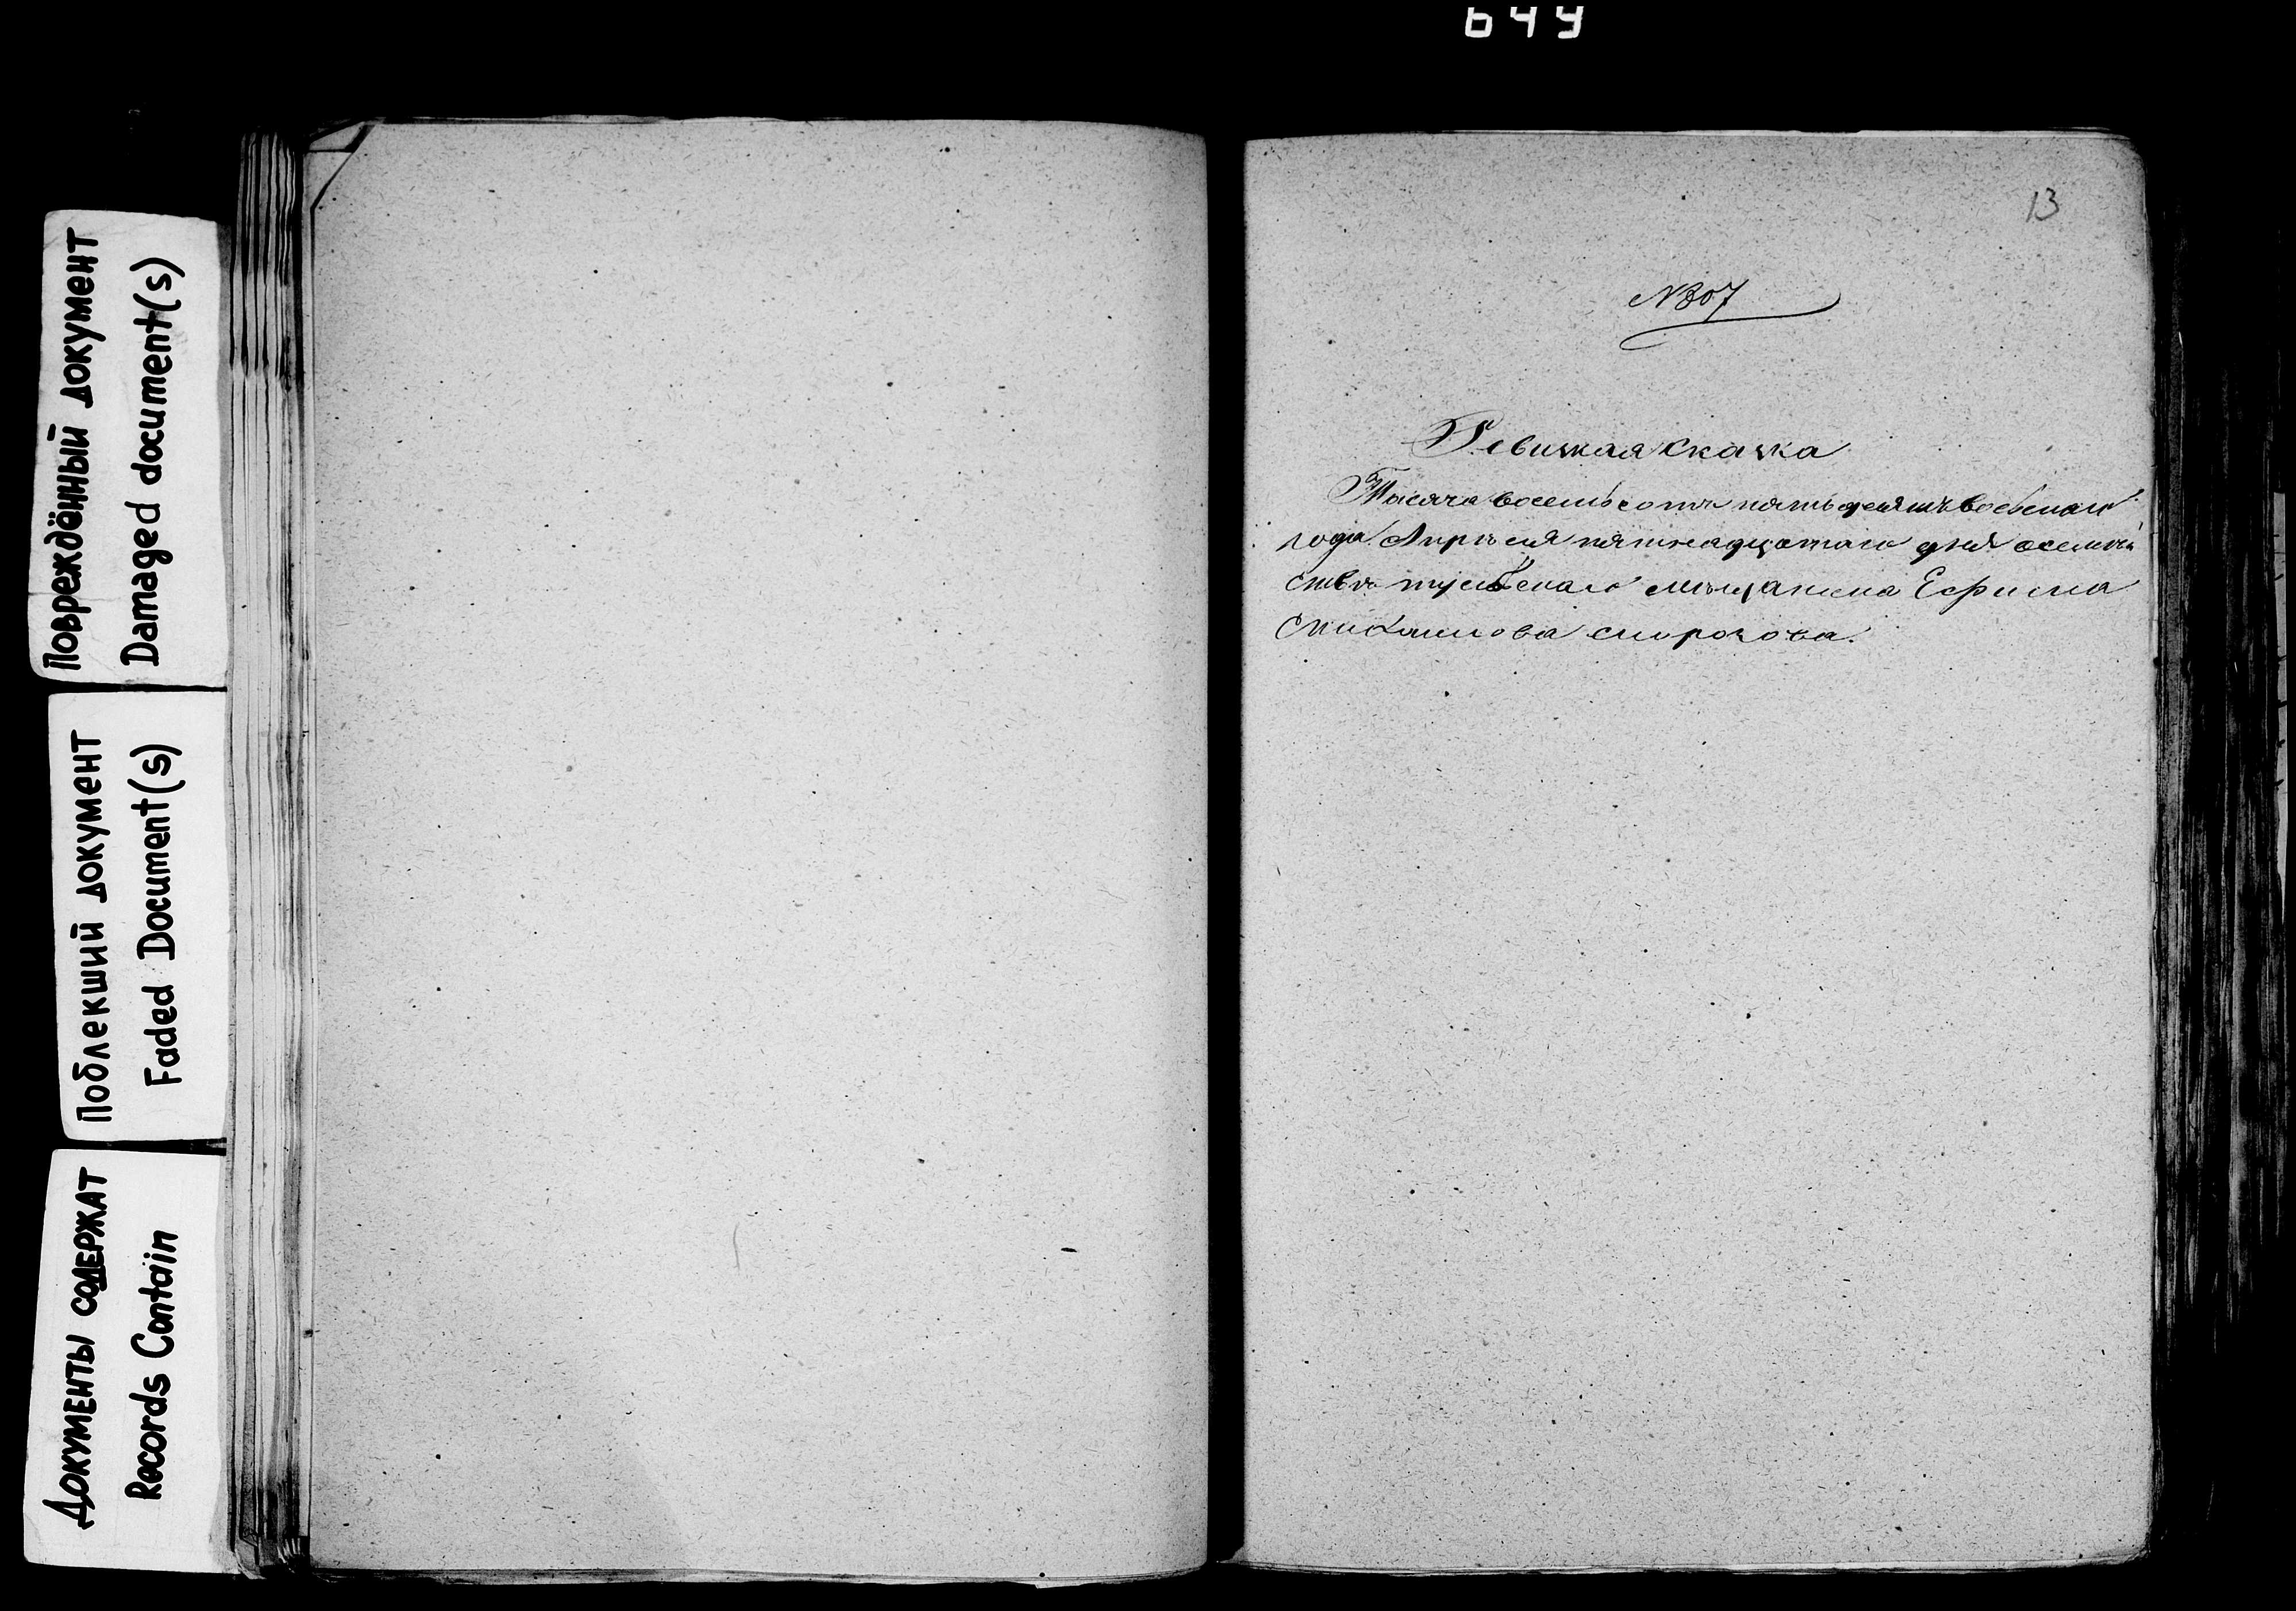 649
Повреждённый документ
Damaged document(s)
Поблекший документ
Faded Document(s)
Документы содержат
Records Contain
13
№307
Ревижая скажка
Тысяча восемьсотъ пятьдесятъ восьмаго
года Апреля пятнадцатаго дня осемей
ствѣ мещанина Ефима